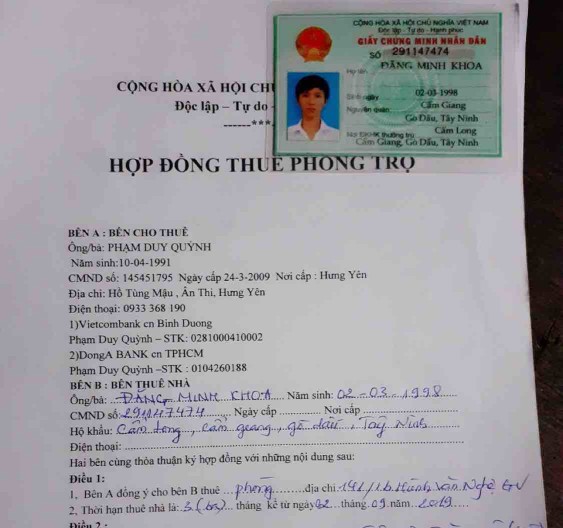 CỘNG HÒA XÃ HỘI CHỦ NGHĨA VIỆT NAM
Độc lập - Tự do - Hạnh phúc
GIẤY CHỨNG MINH NHÂN DÂN
SỐ 291147474
Họ tên ĐẶNG MINH KHOA
Sinh ngày 02-03-1998
Nguyên quán Cẩm Giang
Gò Dầu, Tây Ninh
Nơi ĐKHK thường trú Cẩm Long
Cẩm Giang, Gò Dầu, Tây Ninh
CỘNG HÒA XÃ HỘI CH
Độc lập – Tự do -
------***
HỢP ĐỒNG THUÊ PHÒNG TRỌ
BÊN A : BÊN CHO THUÊ
Ông/bà: PHẠM DUY QUỲNH
Năm sinh:10-04-1991
CMND số: 145451795 Ngày cấp 24-3-2009 Nơi cấp : Hưng Yên
Địa chỉ: Hồ Tùng Mậu , Ân Thi, Hưng Yên
Điện thoại: 0933 368 190
1)Vietcombank cn Binh Duong
Phạm Duy Quỳnh – STK: 0281000410002
2)DongA BANK cn TPHCM
Phạm Duy Quỳnh –STK : 0104260188
BÊN B : BÊN THUÊ NHÀ
Ông/bà: ĐẶNG MINH KHOA Năm sinh: 02-03-1998
CMND số: 291147474 Ngày cấp ............ Nơi cấp
Hộ khẩu: Cẩm Long, cẩm giang, gò dầu, Tây Ninh
Điện thoại:
Hai bên cùng thỏa thuận ký hợp đồng với những nội dung sau:
Điều 1:
1. Bên A đồng ý cho bên B thuê ...phòng.........địa chỉ Hánh Văn Nghệ GV
2. Thời hạn thuê nhà là: 3 (ba) tháng kể từ ngày 02 tháng 09 năm 2019
Điều 2 :